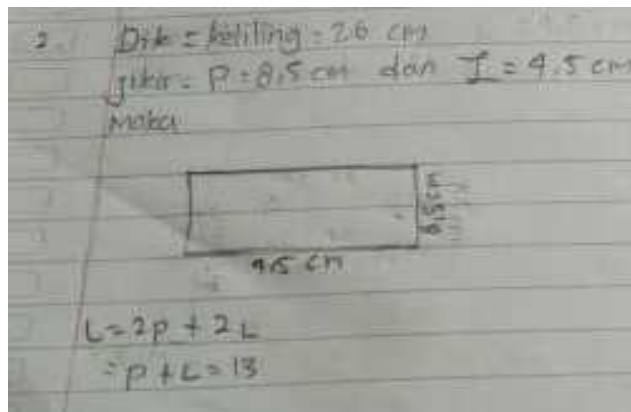 2. Dik = keliling = 26 cm
jika = P = 8,5 cm dan I = 4.5 cm
Maka
8,5 cm
4,5 cm
L = 2p + 2L
= p + L = 13